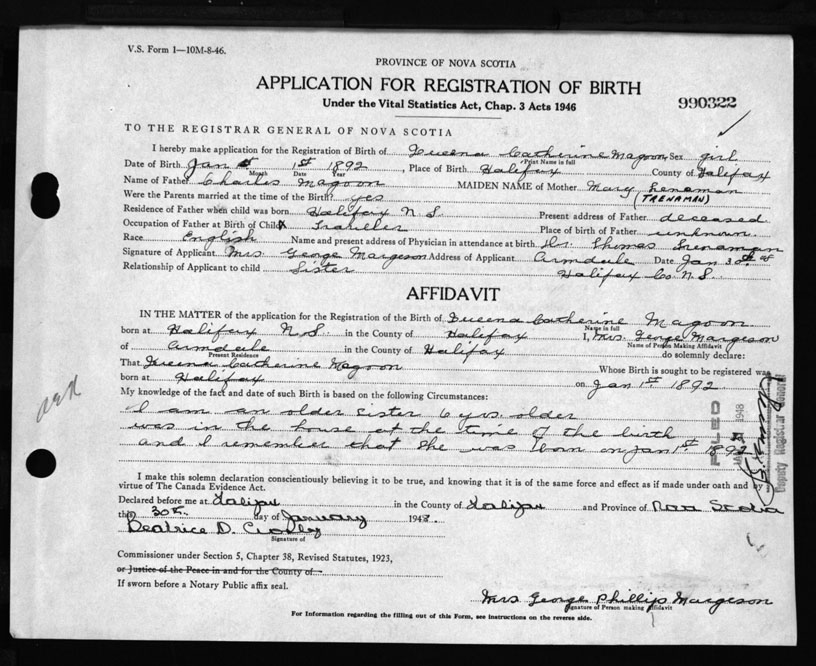 V.S. Form 1—10M-8-46.
PROVINCE OF NOVA SCOTIA
APPLICATION FOR REGISTRATION OF BIRTH
Under the Vital Statistics Act, Chap. 3 Acts 1946
990322
TO THE REGISTRAR GENERAL OF NOVA SCOTIA
I hereby make application for the Registration of Birth of Queena Catherine Magoon Sex girl
Print Name in full
Date of Birth Jan 1st 1892, Place of Birth Halifax County of Halifax
Month Date Year
Name of Father Charles Magoon MAIDEN NAME of Mother Mary Trenaman
Were the Parents married at the time of the Birth? yes (TRENAMAN)
Residence of Father when child was born Halifax N.S. Present address of Father deceased
Occupation of Father at Birth of Child Traveller Place of birth of Father unknown.
Race English Name and present address of Physician in attendance at birth Dr. Thomas Trenaman
Signature of Applicant Mrs George Margeson Address of Applicant Armdale Date Jan 30th 48
Relationship of Applicant to child Sister Halifax Co. N.S.
AFFIDAVIT
IN THE MATTER of the application for the Registration of the Birth of Queena Catherine Magoon
Name in full
born at Halifax N.S. in the County of Halifax I, Mrs. George Margeson
Name of Person Making Affidavit
of Armdale in the County of Halifax do solemnly declare:
Present Residence
That Queena Catherine Magoon Whose Birth is sought to be registered was
born at Halifax on Jan 1st 1892
My knowledge of the fact and date of such Birth is based on the following Circumstances:
I am an older sister 6 yrs. older
was in the house at the time of the birth
and I remember that she was born on Jan 1st 1892
FILED
1948
Deputy Registrar General
I make this solemn declaration conscientiously believing it to be true, and knowing that it is of the same force and effect as if made under oath and by
virtue of The Canada Evidence Act.
Declared before me at Halifax in the County of Halifax and Province of Nova Scotia
this 30th day of January 1948.
Beatrice D. Crosby
Signature of
Commissioner under Section 5, Chapter 38, Revised Statutes, 1923,
or Justice of the Peace in and for the County of
If sworn before a Notary Public affix seal.
Mrs George Phillip Margeson
Signature of Person making affidavit
For Information regarding the filling out of this Form, see instructions on the reverse side.